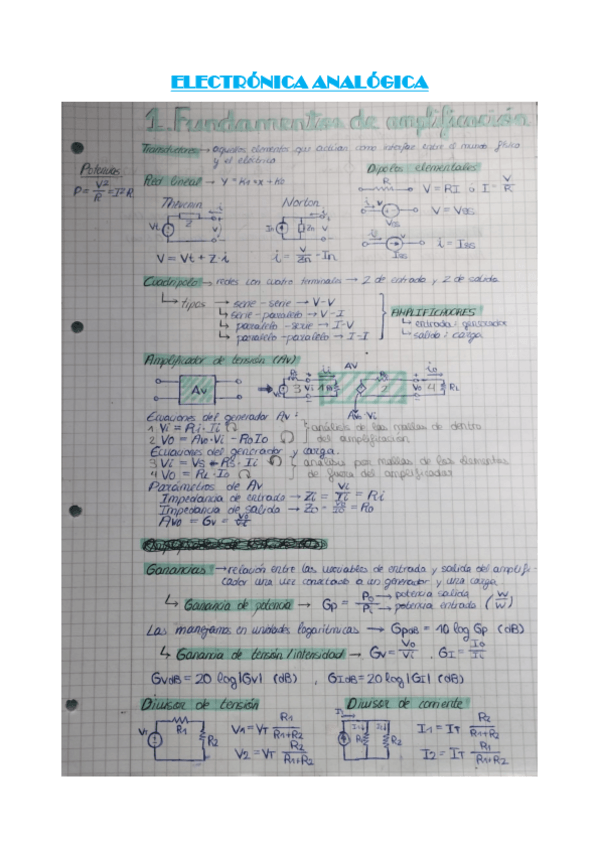 ELECTRÓNICA ANALÓGICA
1. Fundamentos de amplificación
Transductores → aquellos elementos que actúan como interfaz entre el mundo físico
y el eléctrico
Potencias
P = V²/R = I²·R
Red lineal → Y = K1·X + K2
Dipolos elementales
R
V = RI ó I = V/R
V = VGG
VGG
i = IGG
IGG
Thevenin
Vt
Z
V
V = Vt + Z·i
Norton
In
Zn
V
i = V/Zn - In
Cuadripolo → redes con cuatro terminales → Z de entrada y Z de salida
tipos → serie - serie → V-V
serie - paralelo → V-I
paralelo - serie → I-V
paralelo - paralelo → I-I
AMPLIFICADORES
entrada: generador
salida: carga
Amplificador de tensión (Av)
AV
Av
3 Vi 1
2 Vo 4 RL
Avo·Vi
Ecuaciones del generador Av:
1 Vi = Ri·Ii
2 Vo = Avo·Vi - RoIo
análisis de las mallas de dentro
del amplificación
Ecuaciones del generador y carga.
3 Vi = Vs - Rs·Ii
4 Vo = RL·Io
análisis por mallas de los elementos
de fuera del amplificador
Parámetros de Av
Impedancia de entrada → Zi = Vi/Ii = Ri
Impedancia de salida → Zo = Vo/Io = Ro
Avo = Gv = Vo/Vi
Ganancias → relación entre las variables de entrada y salida del amplifi-
cador una vez conectado a un generador y una carga.
Ganancia de potencia → Gp = Po/Pi → potencia salida → potencia entrada (W/W)
Las manejamos en unidades logarítmicas → GpdB = 10 log Gp (dB)
Ganancia de tensión/intensidad → Gv = Vo/Vi , GI = Io/Ii
GvdB = 20 log |Gv| (dB) , GIdB = 20 log |GI| (dB)
Divisor de tensión
R1
R2
V1 = VT R1/(R1+R2)
V2 = VT R2/(R1+R2)
Divisor de corriente
R1
R2
I1 = IT R2/(R1+R2)
I2 = IT R1/(R1+R2)